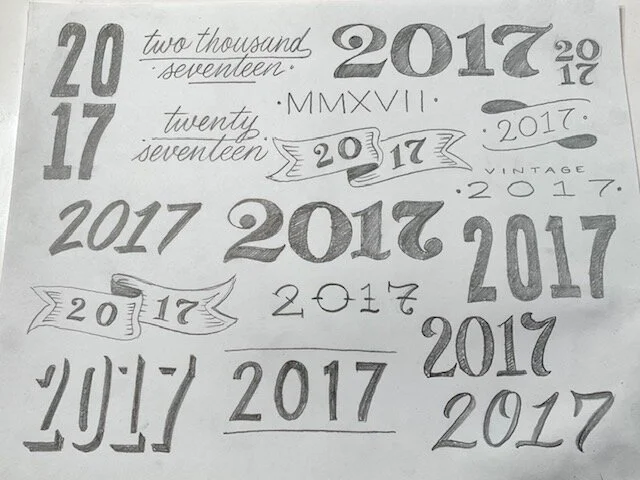 20
17
two thousand
seventeen
2017
20
17
MMXVII
twenty
seventeen
20 17
2017
VINTAGE
2017
2017
2017
2017
20 17
2017
2017
2017
2017
2017